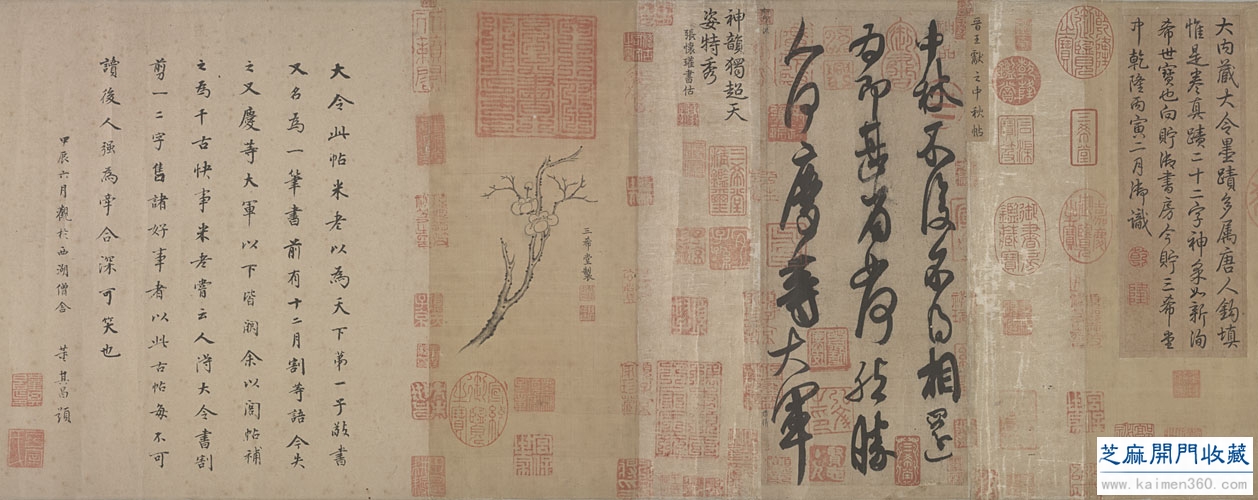 大内藏大令墨蹟多属唐人鈎填
惟是卷真蹟二十二字神采如新洵
希世寶也向貯御書房今貯三希堂
中乾隆丙寅二月御識
三希堂
晉王獻之中秋帖
中秋不復不得相還
為即甚省如何然勝
人何慶等大軍
神韻獨超天
姿特秀
張懷瓘書估
三希堂製
大令此帖米老以為天下第一子敬書
又名為一筆書前有十二月割等語今失
之又慶等大軍以下皆闕余以閣帖補
之為千古快事米老嘗云人得大令書割
剪一二字售諸好事者以此古帖每不可
讀後人強為牽合深可笑也
甲辰六月觀於西湖僧舍 董其昌題
芝麻開門收藏
www.kaimen360.com